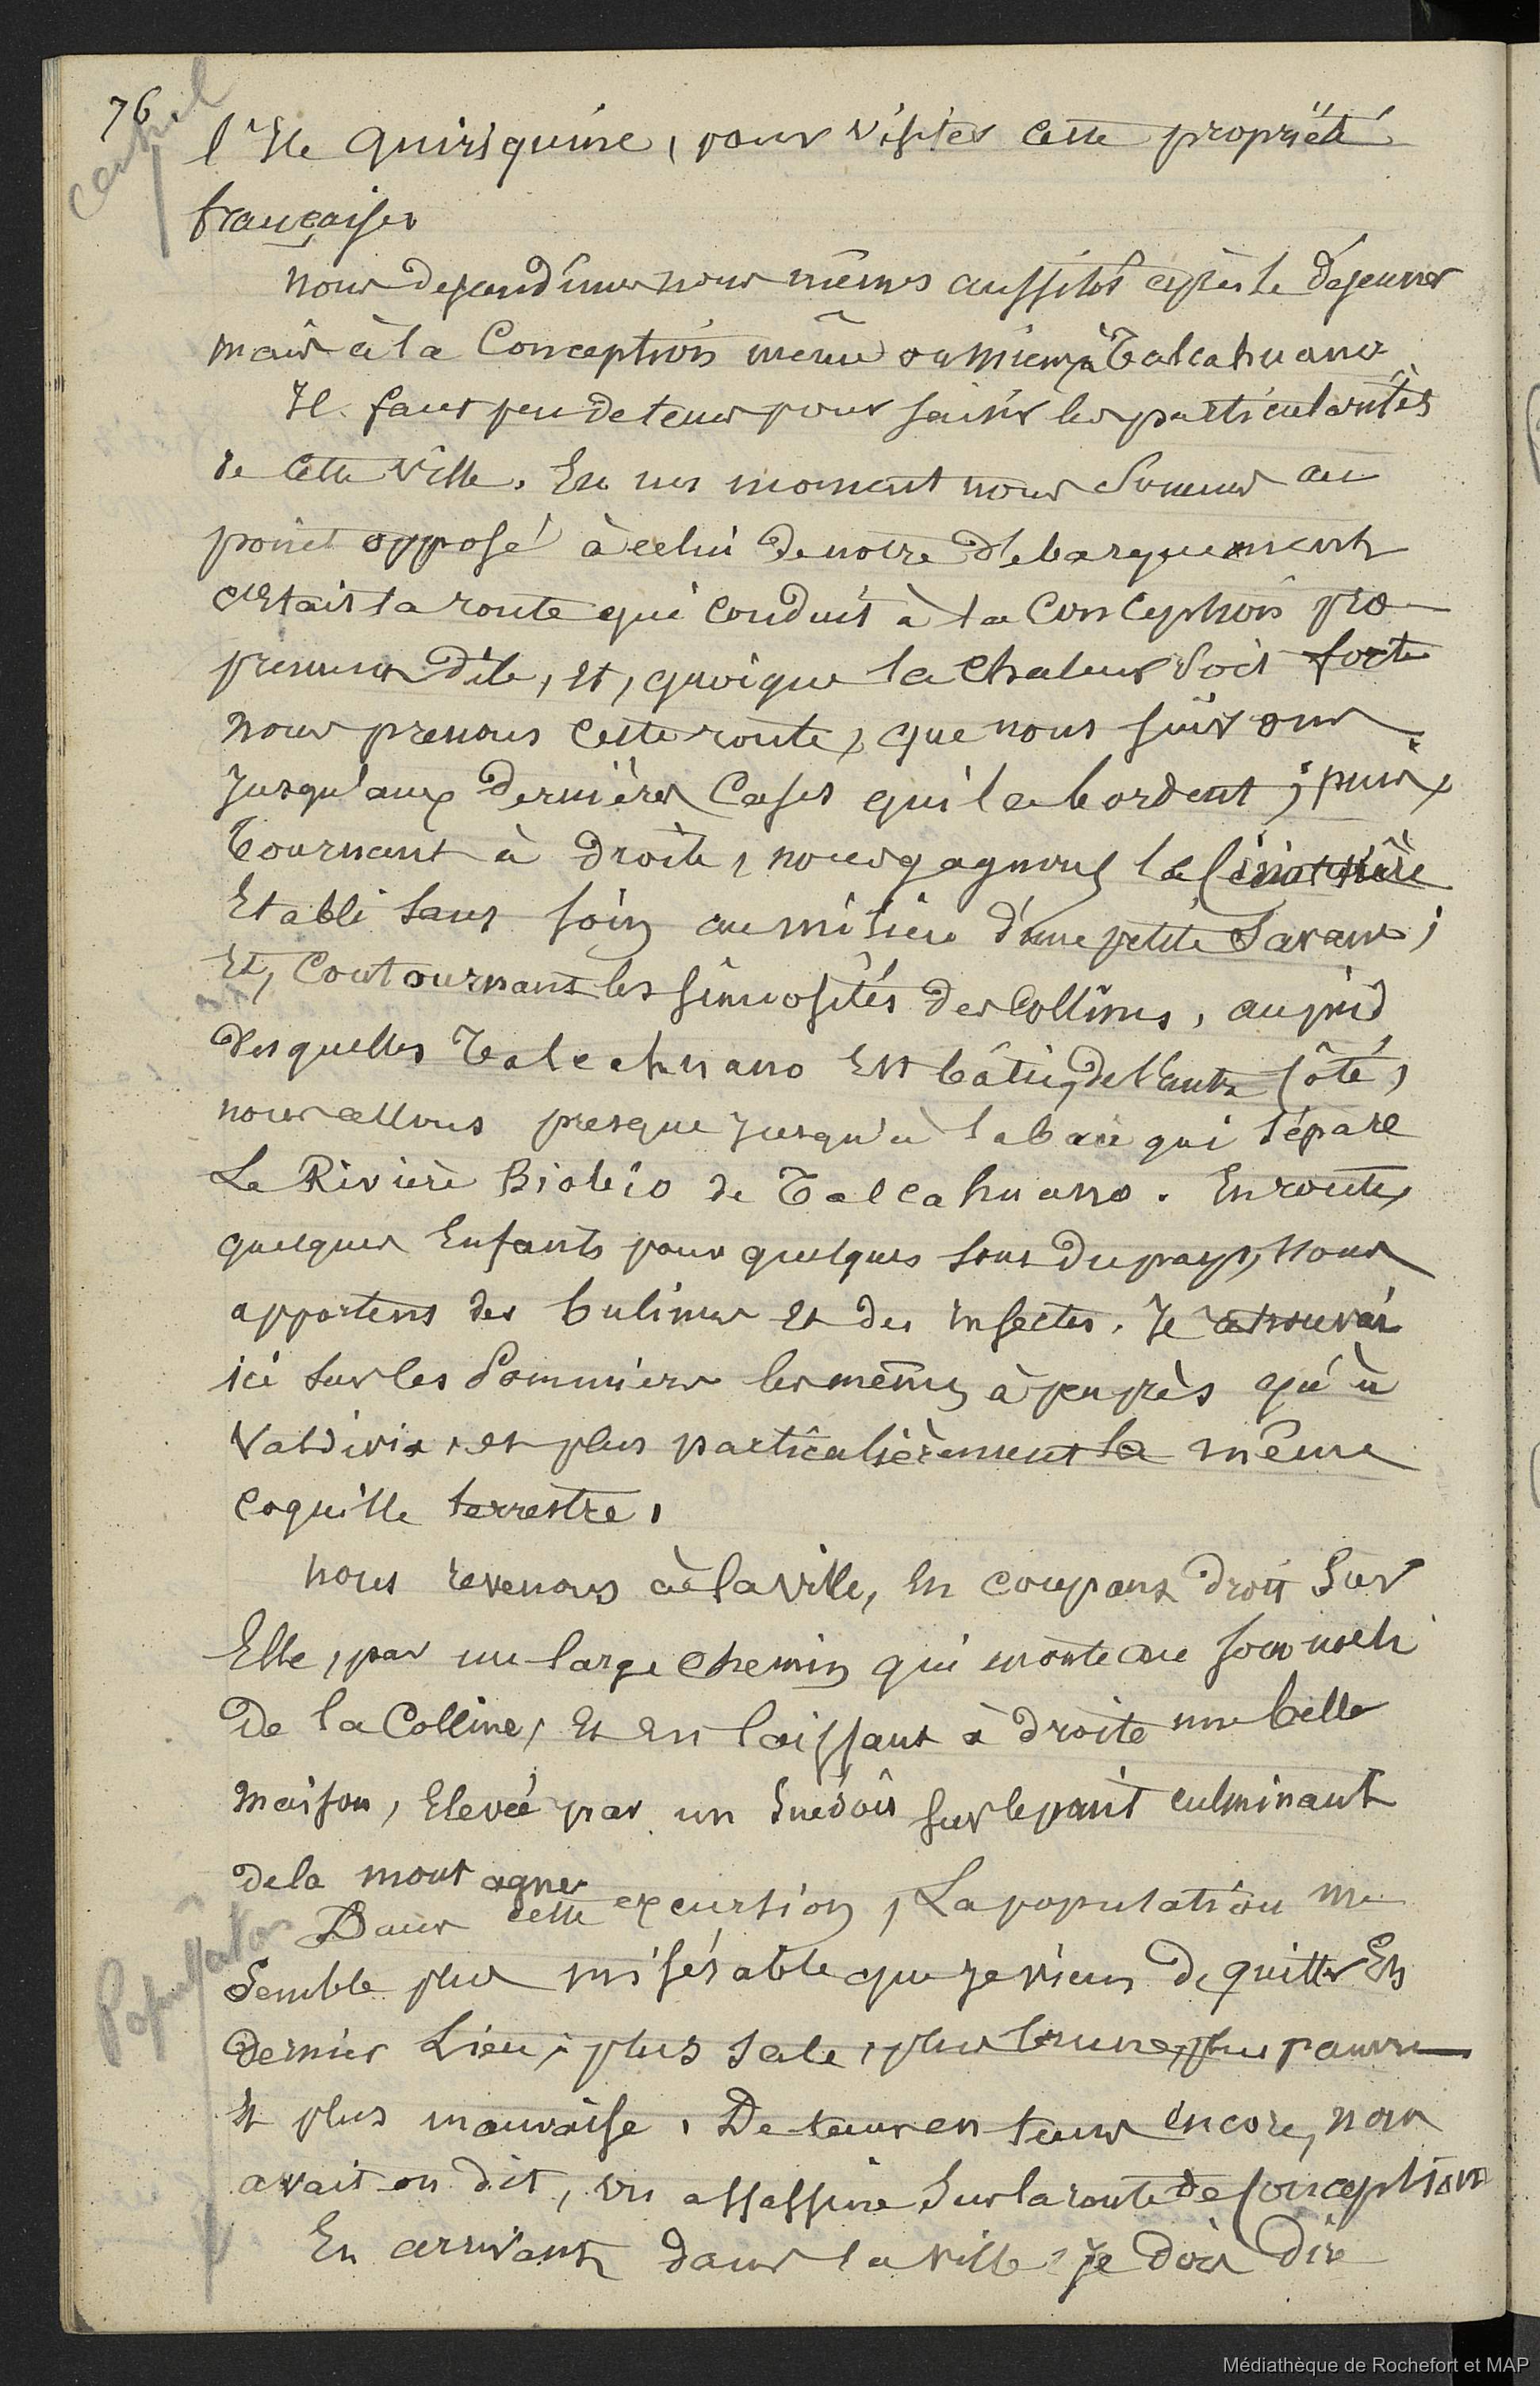 76
l'Ile Quiriquine, pour visiter cette propriété
française
nous descendimes nous mêmes aussitôt après le dejeuner
mais à la Conception même ou mieux à Talcahuano
Il faut peu de tems pour saisir les particularités
de cette ville. En un moment nous sommes au
point opposé à celui de notre debarquement
c'Etait la route qui conduit à la Conception pro-
prement dite, et, quoique la chaleur soit forte
nous prenons cette route, que nous suivons
jusqu'aux dernières Cases qui la bordent ; puis,
tournant à droite, nous gagnons le Cimetière
Etabli sans soin au milieu d'une petite Savane ;
Et, contournant les sinuosités des Collines, au pied
desquelles Talcahuano Est bâtie, de l'autre côté,
nous allons presque jusqu'à la baie qui sépare
La Rivière Biobio de Talcahuano. En route,
quelques Enfants pour quelques sous du pays, nous
apportens des bulimes et des insectes. Je retrouvai
ici sur les Pommiers les mêmes à peu près qu'à
Valdivia, et plus particulièrement la même
coquille terrestre,
nous revenons à la ville, en coupant droit sur
Elle, par un large chemin qui monte au sommet
De la Colline, Et en laissant à droite une belle
maison, Elevée par un Suédois sur le point culminant
de la montagne
Dans cette excursion, La population me
Semble plus misérable que je viens de quitter En
dernier Lieu ; plus sale, plus brune, plus pauvre
et plus mauvaise. De tems en tems encore, nous
avait on dit, on assassine sur la route de Conception
En arrivant dans la ville, je dois dire
Population
Médiathèque de Rochefort et MAP